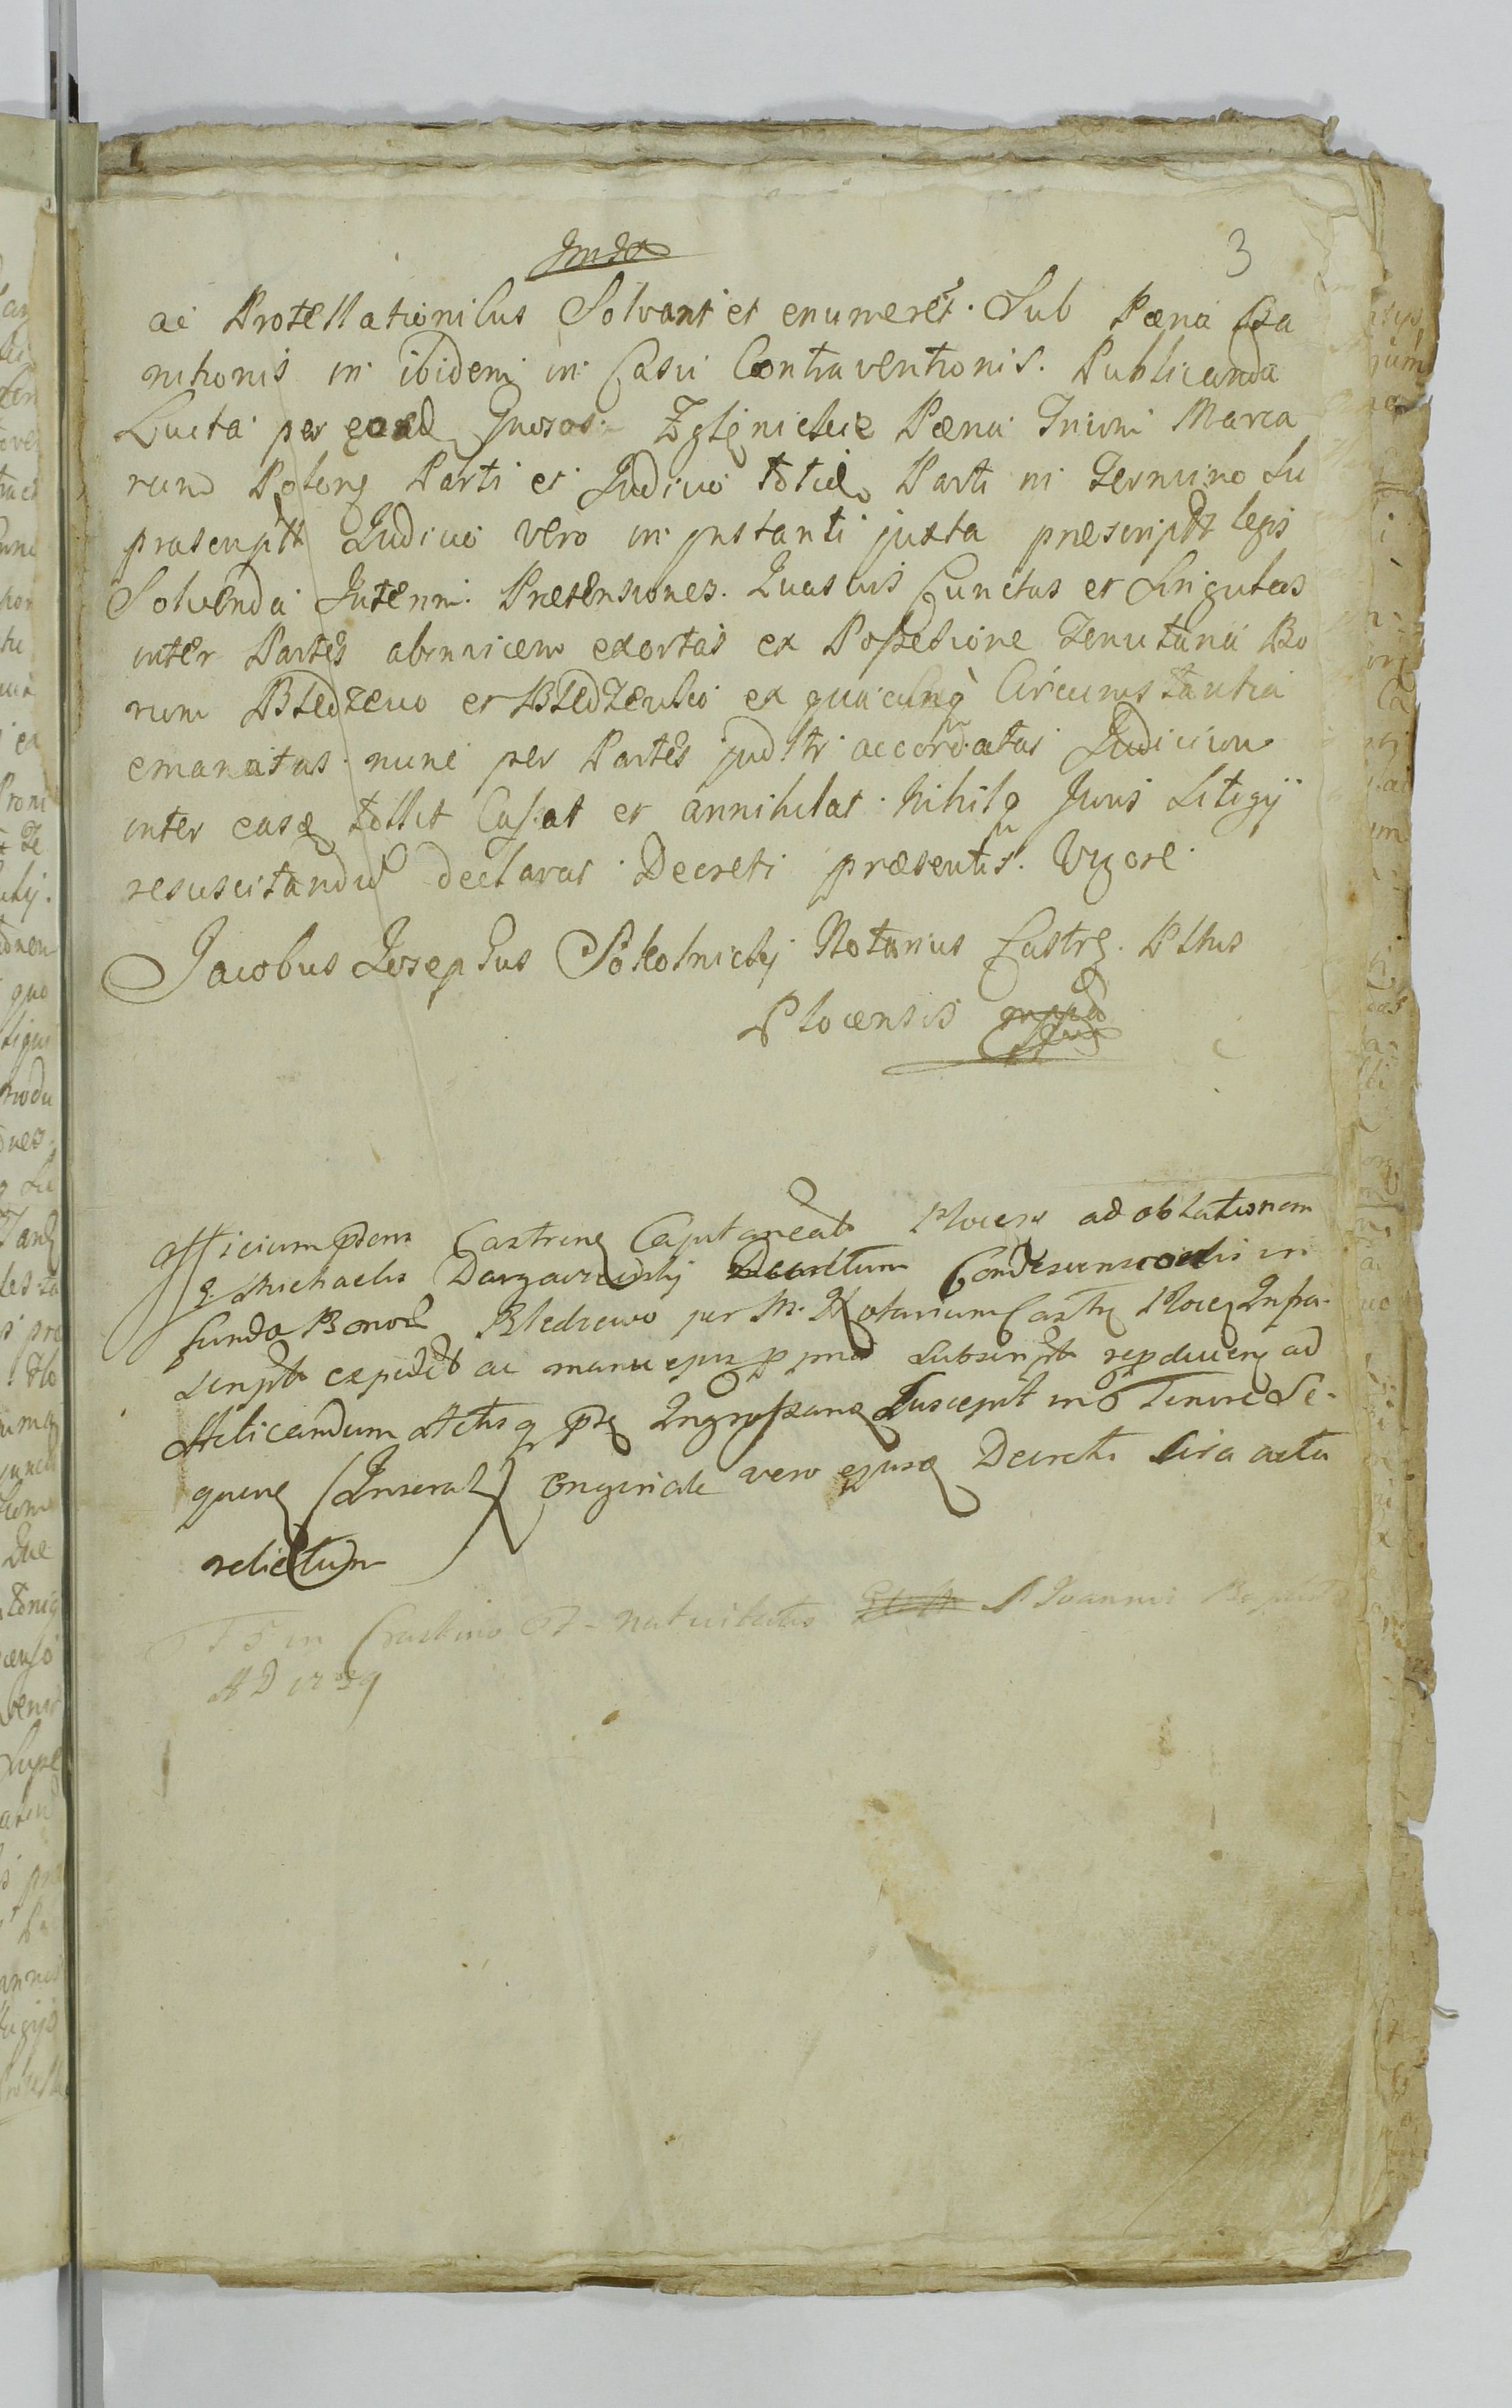 3
ac Protestationibus Solvant et enumeret. Sub Pæna Ba
nitionis in ibidem in Casu Contraventionis. Publicanda
Lucta per eosd Gnrosos Zglinickie Pæna Trium Marca
rum Polong Parti et Judicio totid Parti in Termino Su
prascriptt Judicio vero in instanti juxta præscriptt legis
Solvenda Interim. Prætensiones. Quasvis Cunctas et Singulas
inter Partes abinvicem exortas ex Possesione Tenutaria Bo
rum Bledzewo et Bledzewko ex quacunq Circumstantia
emanatas nunc per Partes judltr accordatas Judicium
inter easq tollit Cassat et annihilat. Nihilq Juris Litigij
resuscitandu declarat. Decreti præsentis. Vigore.
Jacobus Josephus Sokolnicky Notarius Castrg. Pttus
Plocensis mppa
Officium pdens Castreng Capitaneate Plocens ad oblationem
g. Michaelis Dargawiecky Decretum Condescensorialis in
fundo Bonor Bledzewo per M. Notarium Castrg Ploceg Infra
script expedit ac manu ejus pp mu Subscript repducens ad
Acticandum Actisq psg Ingrossang Suscepit in Tenore Se-
queng (Inserat) originale vero ejusq Decreti circa acta
relictum
in Crastino Nativitatis S Joannis Baptt
A D 1739